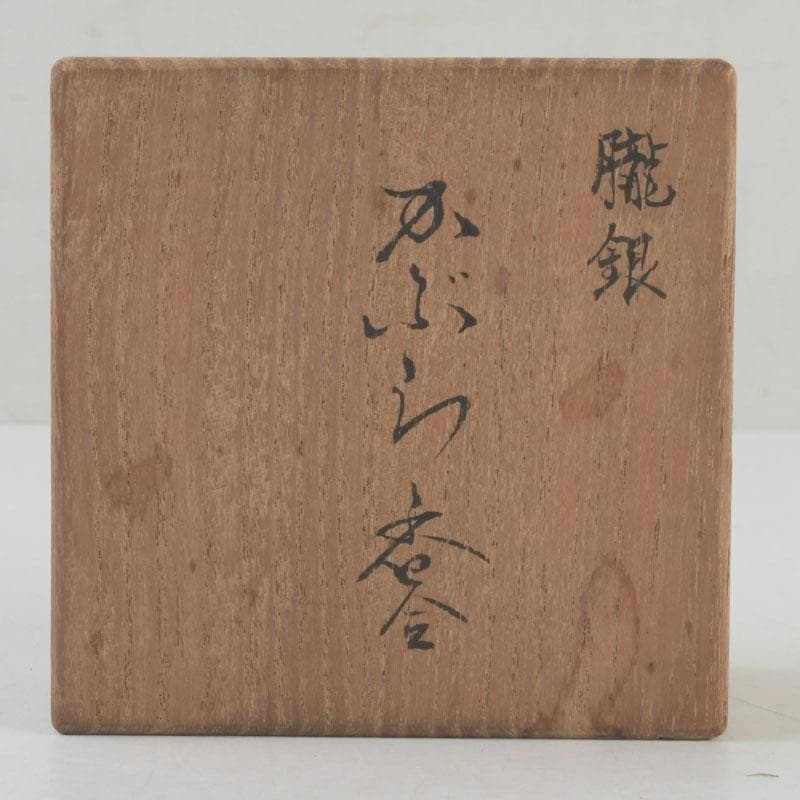 朧銀
かぶら香合